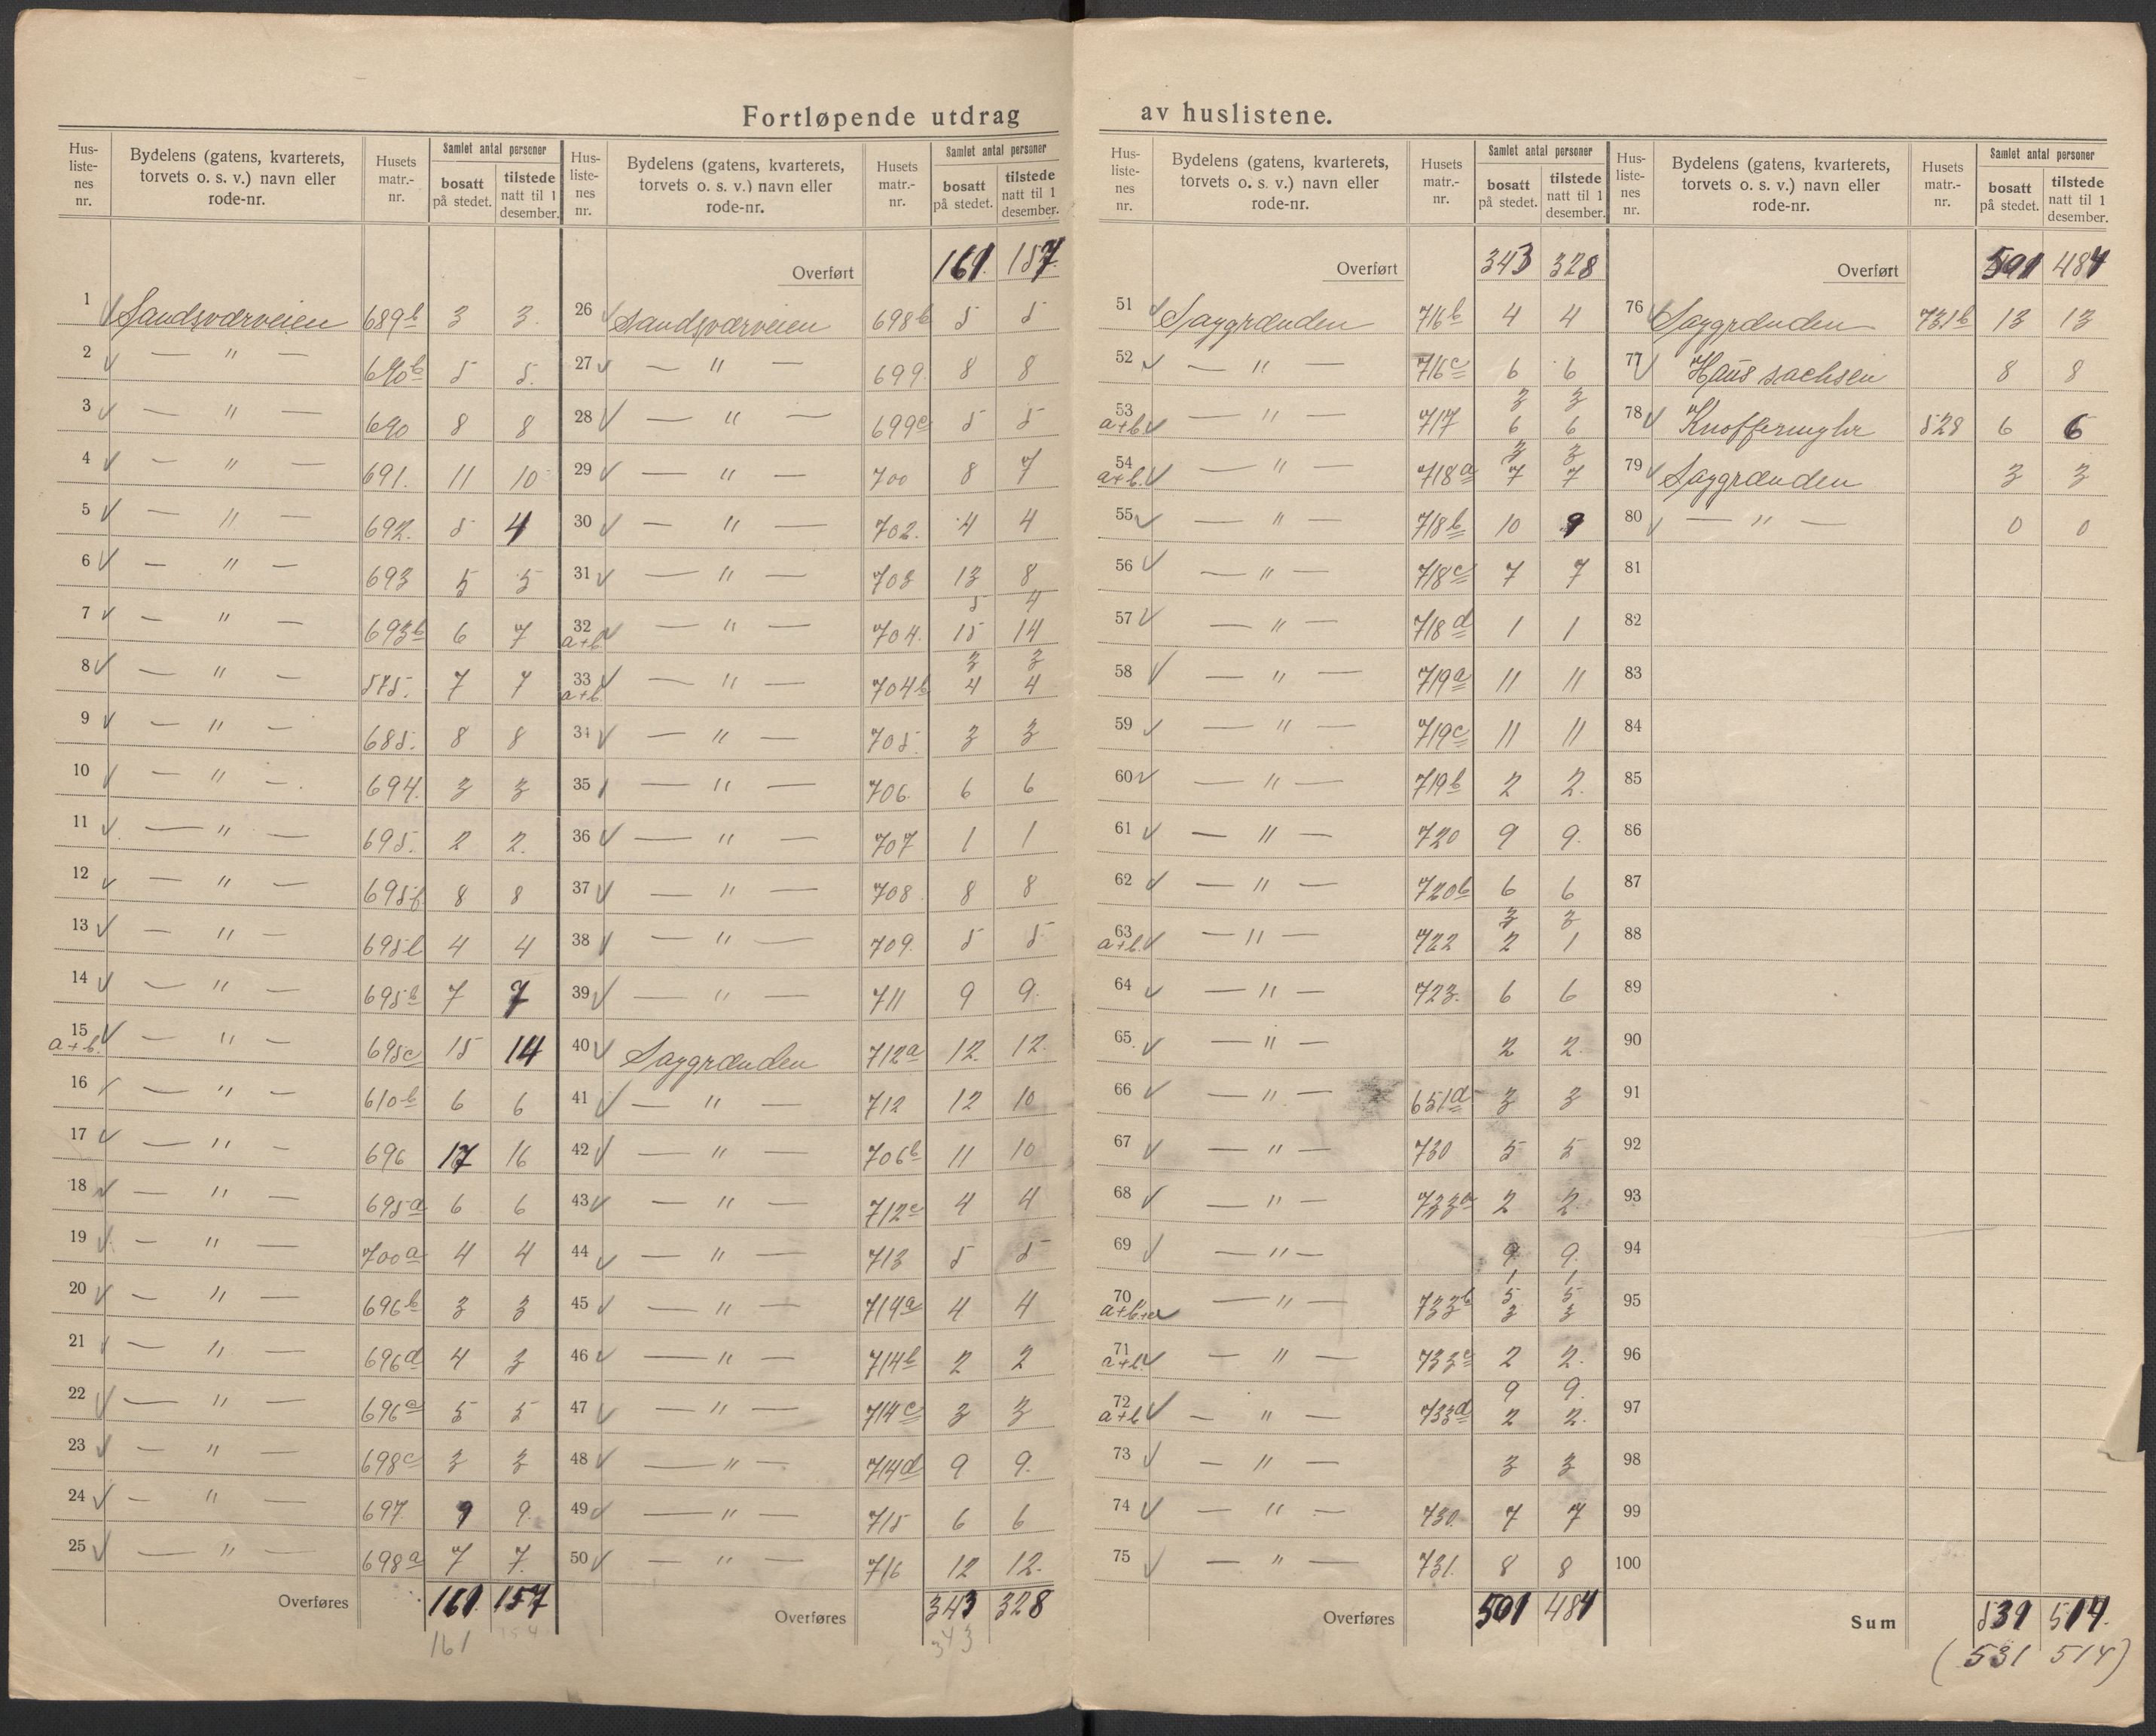 Fortløpende utdrag av huslistene.
Hus-listenes nr. | Bydelens (gatens, kvarterets, torvets o. s. v.) navn eller rode-nr. | Husets matr.-nr. | Samlet antal personer bosatt på stedet. | tilstede natt til 1 desember.
1 Sandsværveien 689b 3 3
2 — " — 690b 5 5.
3 — " — 690 8 8
4 — " — 691. 11 10
5 — " — 692. 5 4
6 — " — 693 5 5
7 — " — 693b 6 7
8 — " — 575. 7 7
9 — " — 685. 8 8
10 — " — 694. 3 3
11 — " — 695. 2 2.
12 — " — 695f 8 8
13 — " — 695b 4 4
14 — " — 695b 7 7
15 a+b. — " — 695c 15 14
16 — " — 610b 6 6
17 — " — 696 17 16
18 — " — 695a 6 6
19 — " — 700a 4 4
20 — " — 696b 3 3
21 — " — 696d 4 3
22 — " — 696c 5 5
23 — " — 698c 3 3
24 — " — 697 9 9.
25 — " — 698a 7 7.
Overføres 161. 157
161 154
Hus-listenes nr. | Bydelens (gatens, kvarterets, torvets o. s. v.) navn eller rode-nr. | Husets matr.-nr. | Samlet antal personer bosatt på stedet. | tilstede natt til 1 desember.
Overført 161. 157.
26 Sandsværveien 698b 5 5
27 — " — 699. 8 8
28 — " — 699c 5 5
29 — " — 700 8 7
30 — " — 702. 4 4
31 — " — 703 13 8
5 4
32 a+b. — " — 704. 15 14
3 3
33 a+b. — " — 704b 4 4
34 — " — 705. 3 3
35 — " — 706. 6 6
36 — " — 707 1 1
37 — " — 708 8 8
38 — " — 709. 5 5
39 — " — 711 9 9.
40 Saggrænden 712a 12. 12.
41 — " — 712 12 10
42 — " — 706b 11 10
43 — " — 712c 4 4
44 — " — 713 5 5
45 — " — 714a 4 4
46 — " — 714b 2 2
47 — " — 714c 3 3
48 — " — 714d 9 9.
49 — " — 715 6 6
50 — " — 716 12 12.
Overføres 343 328
343
Hus-listenes nr. | Bydelens (gatens, kvarterets, torvets o. s. v.) navn eller rode-nr. | Husets matr.-nr. | Samlet antal personer bosatt på stedet. | tilstede natt til 1 desember.
Overført 343 328
51 Saggrænden 716b 4 4
52 — " — 716c 6 6
3 3
53 a+b. — " — 717 6 6
3 3
54 a+b. — " — 718a 7 7
55 — " — 718b 10 9
56 — " — 718c 7 7
57 — " — 718d 1 1
58 — " — 719a 11 11
59 — " — 719c 11 11
60 — " — 719b 2 2.
61 — " — 720 9 9.
62 — " — 720b 6 6
3 3
63 a+b. — " — 722 2 1
64 — " — 723. 6 6
65. — " — 2 2.
66 — " — 651a 3 3
67 — " — 730 5 5
68 — " — 733a 2 2
69 — " — 9 9.
1 1
5 5
70 a+b+c — " — 733b 3 3
71 a+b. — " — 733c 2 2.
9 9.
72 a+b — " — 733d 2 2.
73 — " — 3 3
74 — " — 730. 7 7
75 — " — 731. 8 8
Overføres 501 484
Hus-listenes nr. | Bydelens (gatens, kvarterets, torvets o. s. v.) navn eller rode-nr. | Husets matr.-nr. | Samlet antal personer bosatt på stedet. | tilstede natt til 1 desember.
Overført 501 484
76 Saggrænden 731b 13 13
77 Hans sachsen 8 8
78 Knoffermyhr 528 6 6
79 Saggrænden 3 3
80 — " — 0 0
81
82
83
84
85
86
87
88
89
90
91
92
93
94
95
96
97
98
99
100
Sum 531 514.
(531 514)